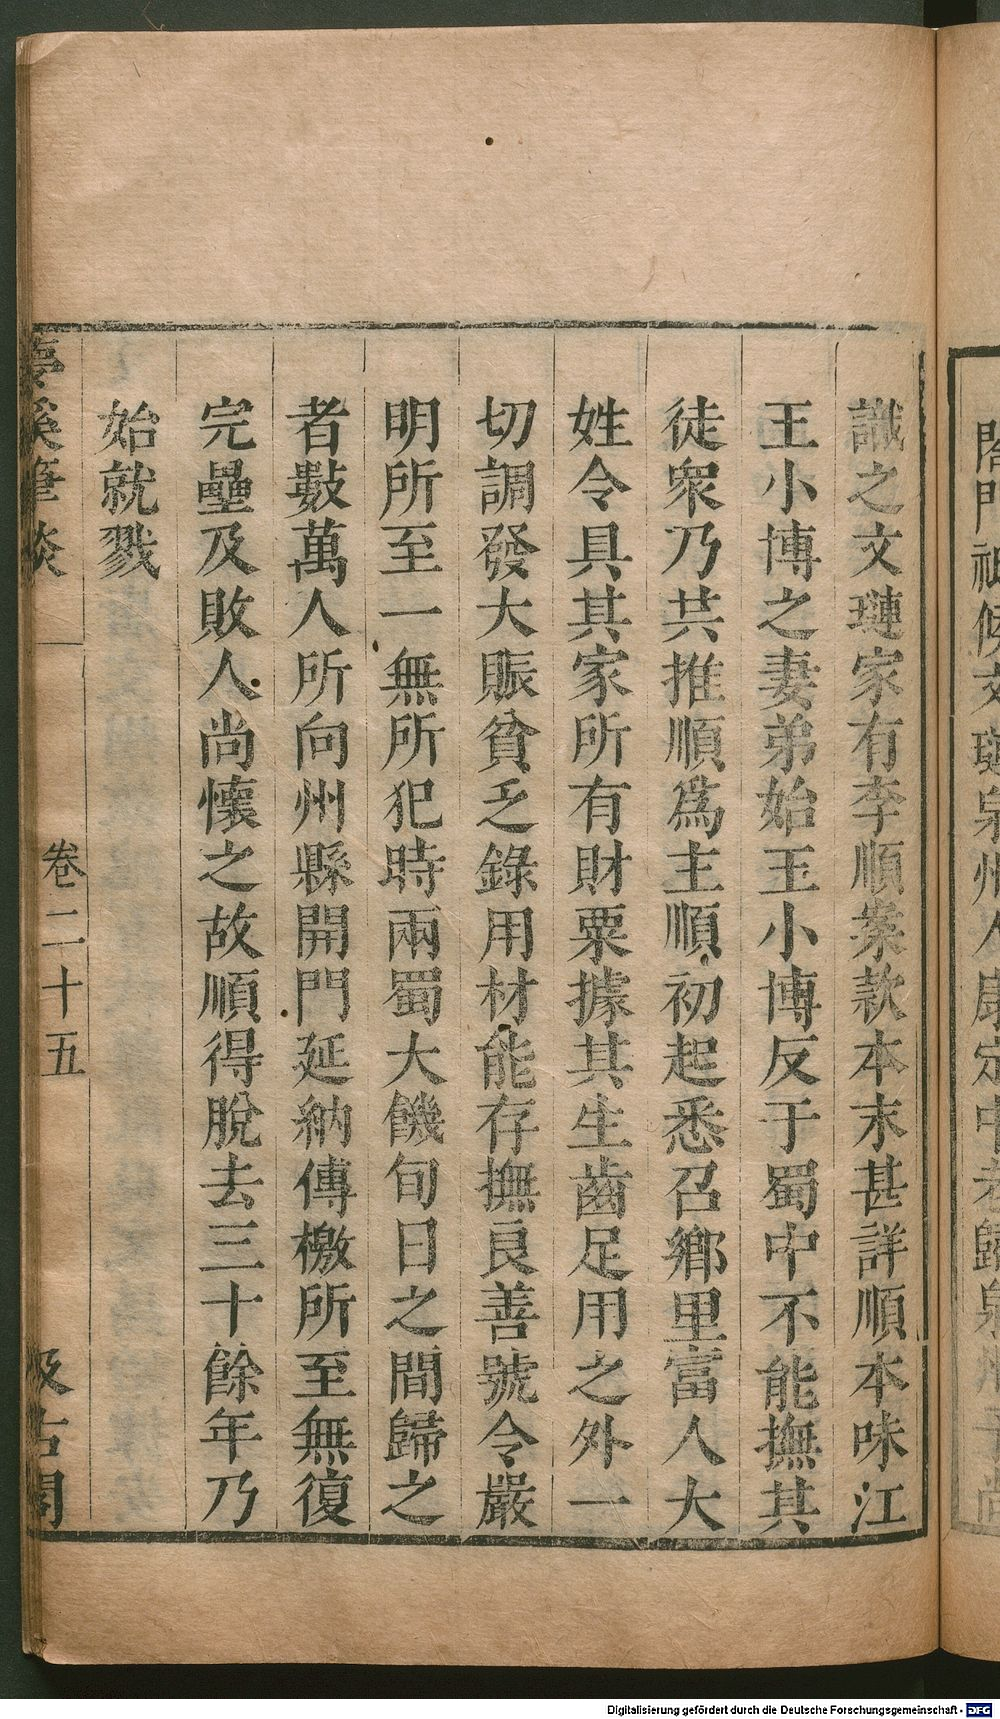 識之文璉家有李順案款本末甚詳順本味江
王小博之妻弟始王小博反于蜀中不能撫其
徒衆乃共推順爲主順初起悉召鄉里富人大
姓令具其家所有財粟據其生齒足用之外一
切調發大賑貧乏錄用材能存撫良善號令嚴
明所至一無所犯時兩蜀大饑旬日之間歸之
者數萬人所向州縣開門延納傳檄所至無復
完壘及敗人尚懷之故順得脫去三十餘年乃
始就戮
夢溪筆談 卷二十五 汲古閣
Digitalisierung gefördert durch die Deutsche Forschungsgemeinschaft - DFG